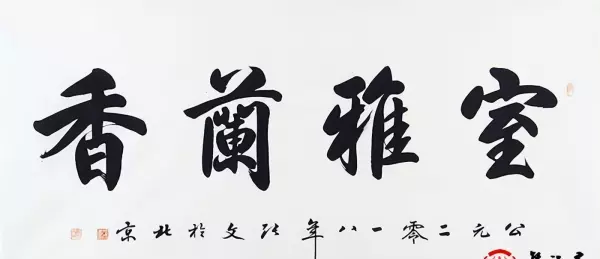 室雅蘭香
公元二零一八年张文於北京